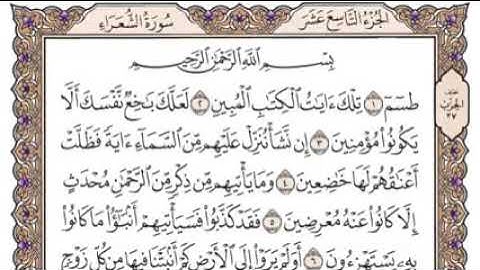 الجُزْءُ التَّاسِعَ عَشَرَ
سُورَةُ الشُّعَرَاءِ
بِسْمِ ٱللَّهِ ٱلرَّحْمَٰنِ ٱلرَّحِيمِ
طسٓمٓ ١ تِلْكَ ءَايَٰتُ ٱلْكِتَٰبِ ٱلْمُبِينِ ٢ لَعَلَّكَ بَٰخِعٌ نَّفْسَكَ أَلَّا
يَكُونُوا۟ مُؤْمِنِينَ ٣ إِن نَّشَأْ نُنَزِّلْ عَلَيْهِم مِّنَ ٱلسَّمَآءِ ءَايَةً فَظَلَّتْ
أَعْنَٰقُهُمْ لَهَا خَٰضِعِينَ ٤ وَمَا يَأْتِيهِم مِّن ذِكْرٍ مِّنَ ٱلرَّحْمَٰنِ مُحْدَثٍ
إِلَّا كَانُوا۟ عَنْهُ مُعْرِضِينَ ٥ فَقَدْ كَذَّبُوا۟ فَسَيَأْتِيهِمْ أَنۢبَٰٓؤُا۟ مَا كَانُوا۟
بِهِۦ يَسْتَهْزِءُونَ ٦ أَوَلَمْ يَرَوْا۟ إِلَى ٱلْأَرْضِ كَمْ أَنۢبَتْنَا فِيهَا مِن كُلِّ زَوْجٍ
الحِزْبُ
٣٧